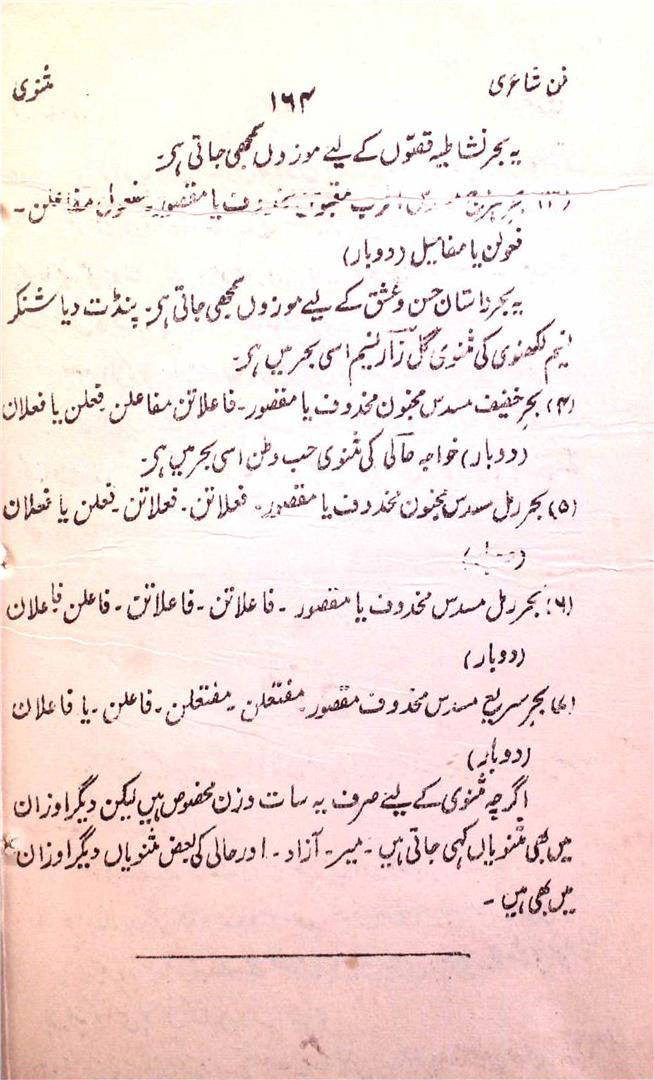 فن شاعری
۱۶۴
مثنوی
یہ بحر نشاطیہ قصّوں کے لیے موزوں سمجھی جاتی ہی۔
(۳) بحر ہزج مسدس اخرب مقبوض محذوف یا مقصور۔ مفعول مفاعلن۔
فعولن یا مفاعیل (دوبار)
یہ بحر داستان حسن و عشق کے لیے موزوں سمجھی جاتی ہی۔ پنڈت دیا شنکر
نسیم لکھنوی کی مثنوی گلزار نسیم اسی بحر میں ہی۔
(۴) بحر خفیف مسدس مجنون محذوف یا مقصور۔ فاعلاتن مفاعلن۔ فعلن یا فعلان
(دوبار) خواجہ حالی کی مثنوی حب وطن اسی بحر میں ہی۔
(۵) بحر رمل مسدس مجنون محذوف یا مقصور۔ فعلاتن۔ فعلاتن۔ فعلن یا فعلان
(دوبار)
(۶) بحر رمل مسدس محذوف یا مقصور۔ فاعلاتن۔ فاعلاتن۔ فاعلن فاعلان
(دوبار)
(۷) بحر سریع مسدس محذوف مقصور۔ مفتعلن۔ مفتعلن۔ فاعلن۔ یا فاعلان
(دوبار)
اگرچہ مثنوی کے لیے صرف یہ سات وزن مخصوص ہیں لیکن دیگر اوزان
میں بھی مثنویاں کہی جاتی ہیں۔ میر۔ آزاد۔ اور حالی کی بعض مثنویاں دیگر اوزان
میں بھی ہیں۔